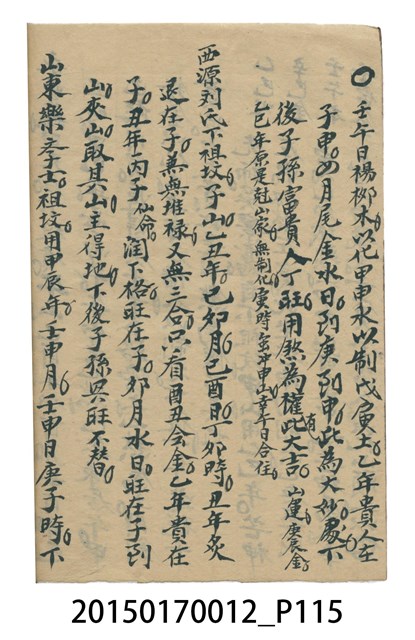 壬午日楊柳木以化甲申水以制戊寅土乙年貴人在
子申四月尾金水日到庚到申此為大妙處下
後子孫富貴人丁旺用煞為權此大吉 山運庚辰金
乙巳年原是冠山家無制化 時
西源刘氏下祖坟子山乙丑年己卯月己酉日丁卯時丑年炙
退在子羔無堆禄又無三合只看酉丑会金乙年貴在
子丑年丙子仙命潤下格旺在子卯月水日旺在子到
山夾山取其山主得地下後子孫興旺不替
山東樂 士祖坟用甲辰年壬申月壬申日庚子時下
20150170012_P115